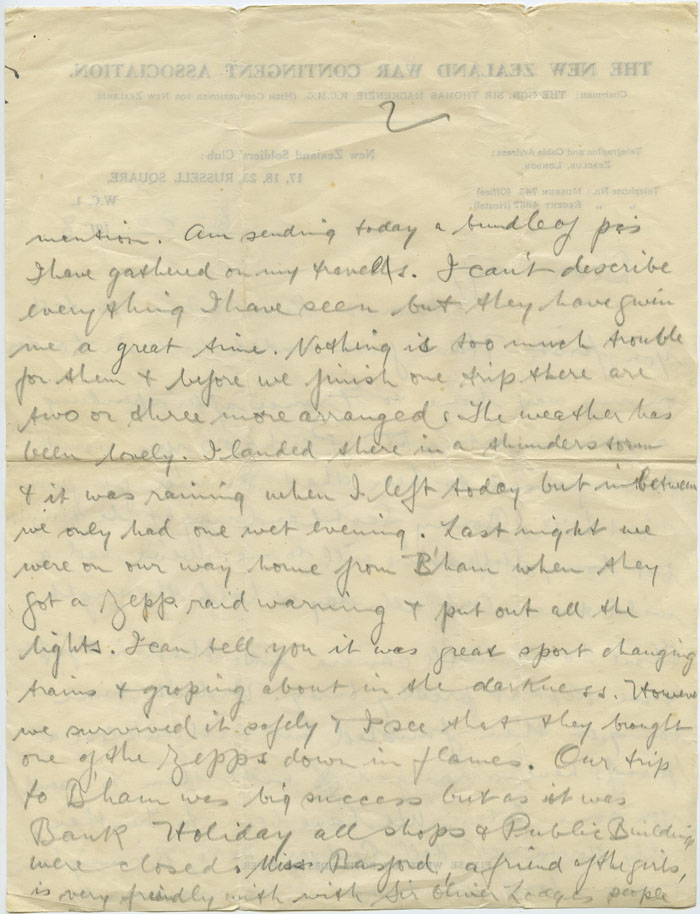 THE NEW ZEALAND WAR CONTINGENT ASSOCIATION.
Chairman: THE HON. SIR THOMAS MACKENZIE, K.C.M.G. (HIGH COMMISSIONER FOR NEW ZEALAND).
2
Telegraphic and Cable Address:
New Zealand Soldiers' Club:
17, 18, 23, RUSSELL SQUARE,
W.C. 1.
mention. Am sending today a bundle of pcs
I have gathered on my travells. I can't describe
everything I have seen but they have givin
me a great time. Nothing is too much trouble
for them & before we finish one trip there are
two or three more arranged. The weather has
been lovely. I landed there in a thunderstorm
& it was raining when I left today but in between
we only had one wet evening. Last night we
were on our way home from B'ham when they
got a Zepp raid warning & put out all the
lights. I can tell you it was great sport changing
trains & groping about in the darkness. However
we survived it safely & I see that they brought
one of the Zepps down in flames. Our trip
to B'ham was big success but as it was
Bank Holiday all shops & Public Building
were closed. Miss Basford, a friend of the girls,
is very friendly with with Sir Oliver Lodges people